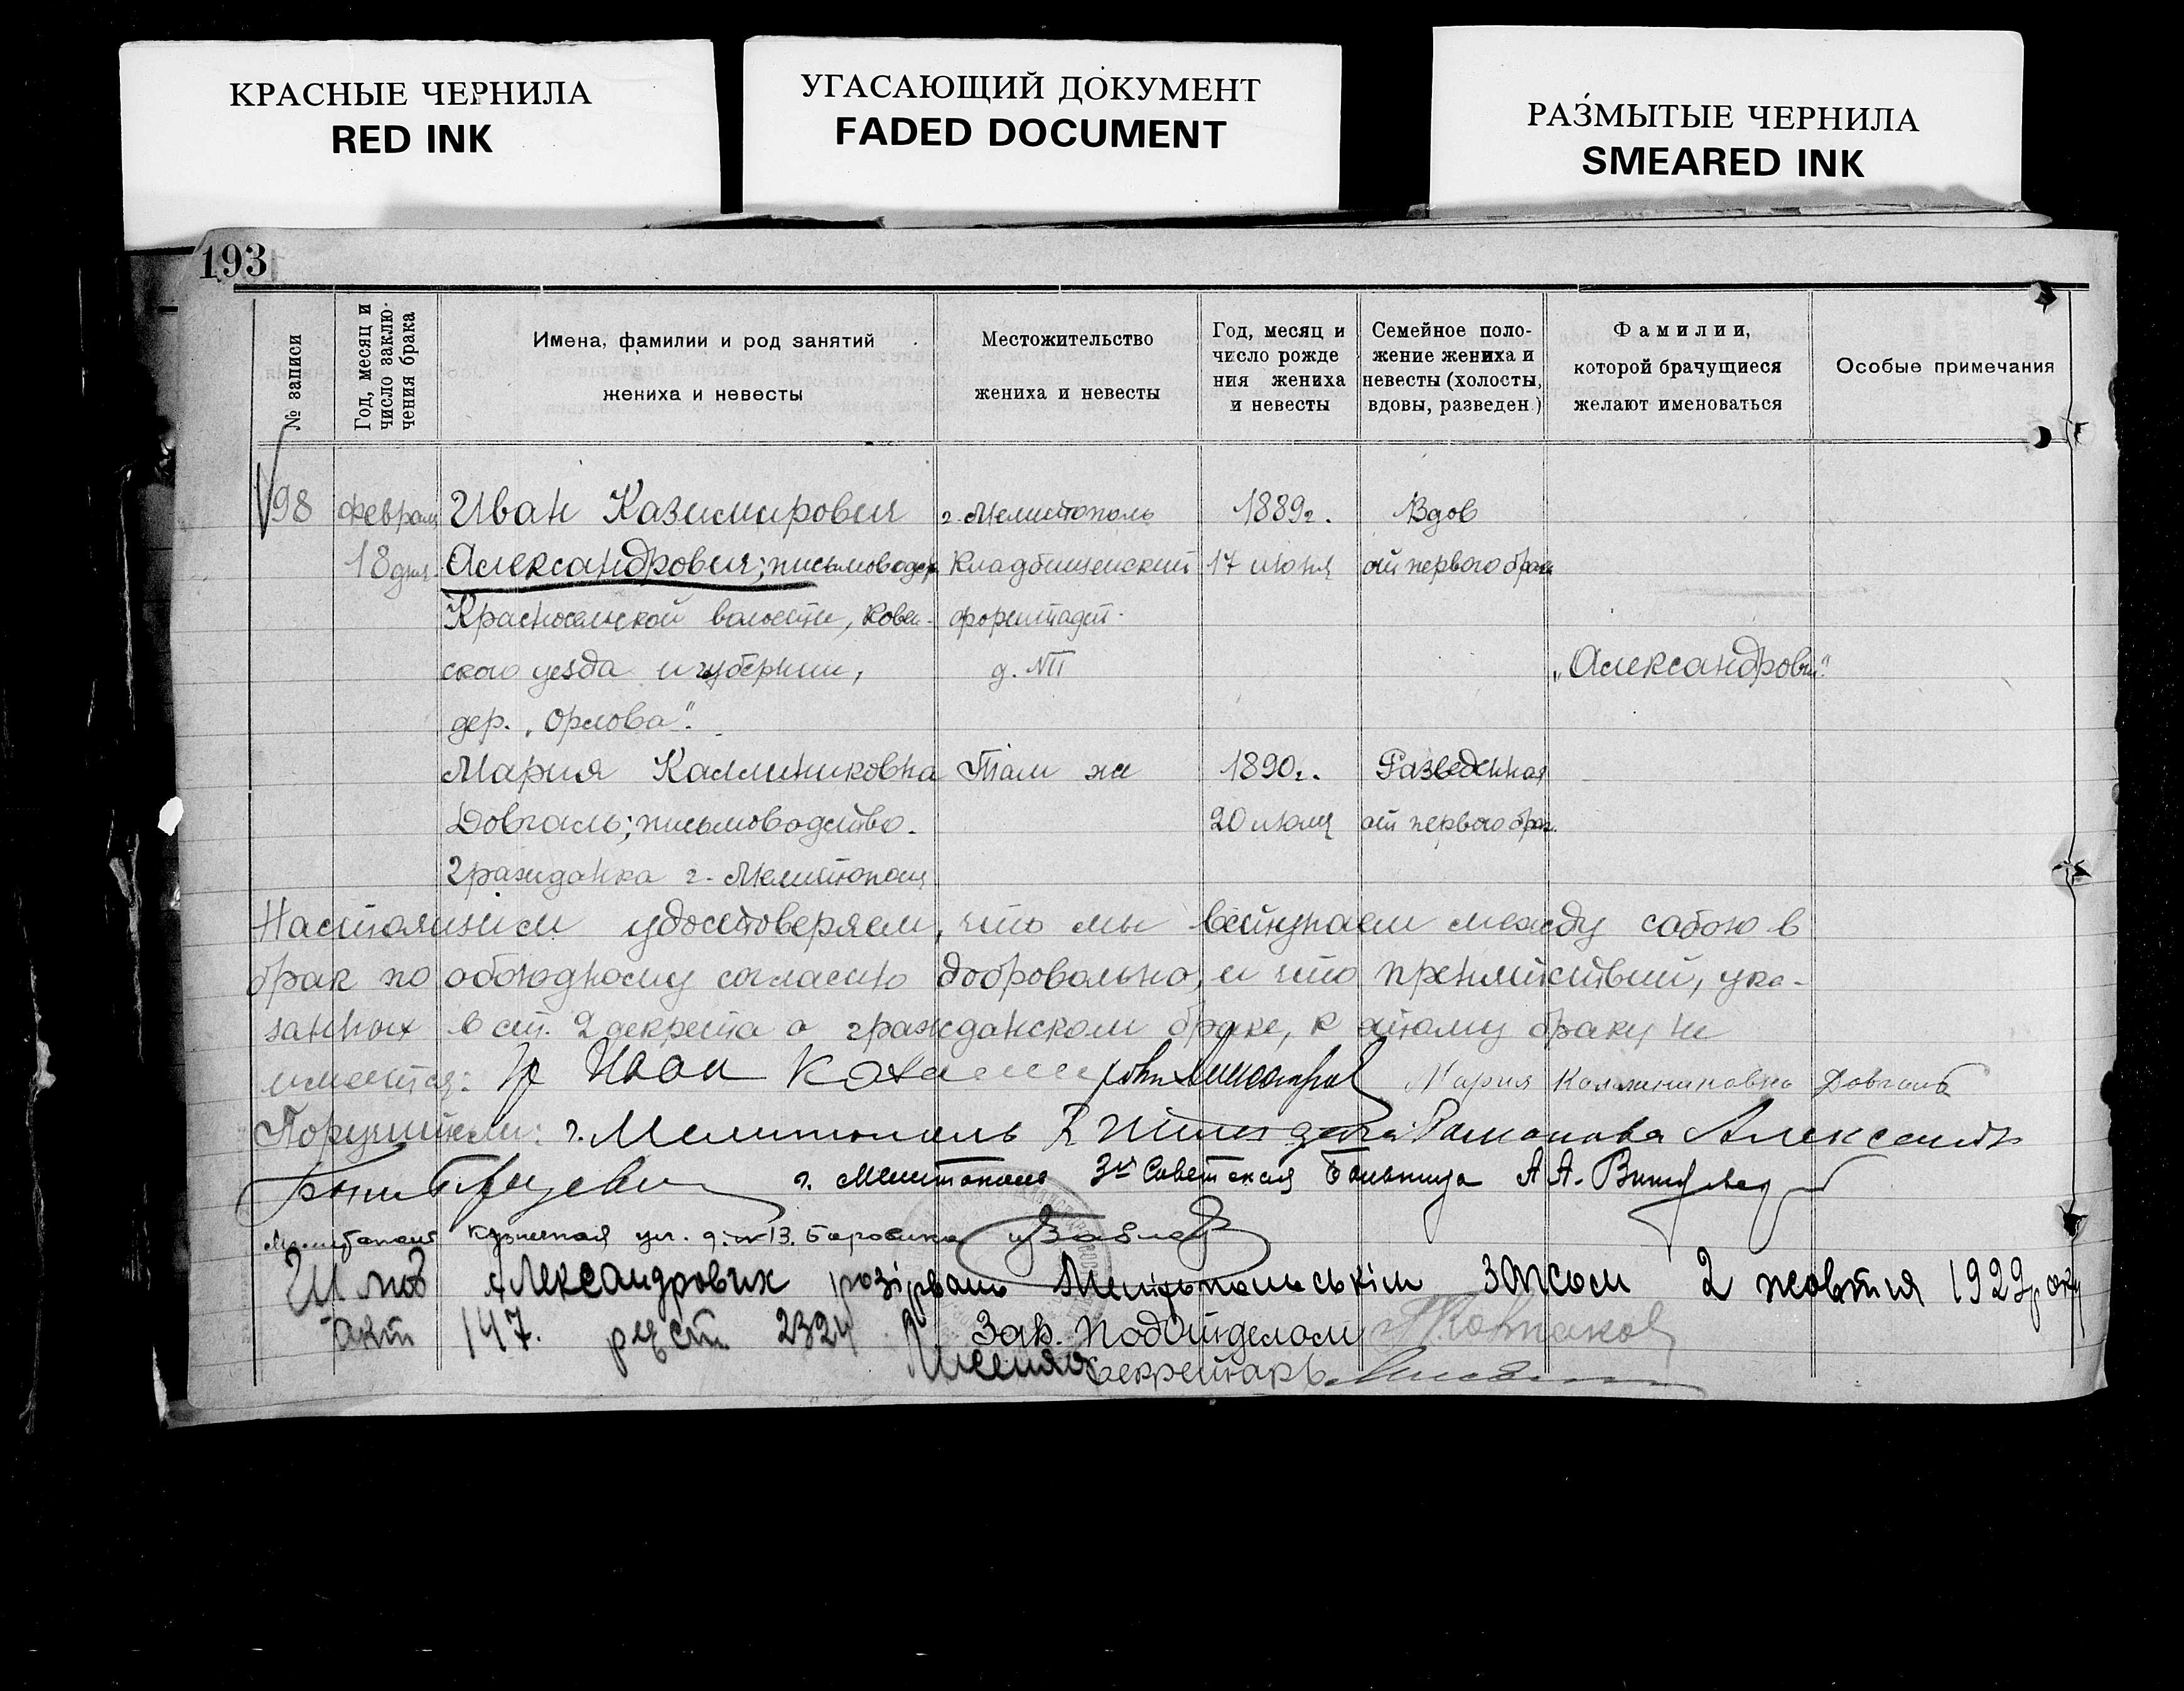 КРАСНЫЕ ЧЕРНИЛА
RED INK
УГАСАЮЩИЙ ДОКУМЕНТ
FADED DOCUMENT
РАЗМЫТЫЕ ЧЕРНИЛА
SMEARED INK
193
№ записи
Год, месяц и
число заклю-
чения брака
Имена, фамилии и род занятий
жениха и невесты
Местожительство
жениха и невесты
Год, месяц и
число рожде
ния жениха
и невесты
Семейное поло-
жение жениха и
невесты (холосты,
вдовы, разведен.)
Фамилии,
которой брачущиеся
желают именоваться
Особые примечания
98 февраля Иван Казимирович г. Мелитополь 1889г. Вдов
18 дня Александрович; письмоводст Кладбищенский 17 июня от первого брака
Красносельской волости, Ковен- форштадт
ского уезда и губернии, д. № „Александрович"
дер. „Орлова".
Мария Каллиниковна Там же 1890г. Разведенная
Довгаль; письмоводство. 20 июля от первого брак.
гражданка г. Мелитополя
Настоящим удостоверяем, что мы вступаем между собою в
брак по обоюдному согласию добровольно, и что препятствий, ука-
занных в ст. 2 декрета о гражданском браке, к этому браку не
имеется: гр Иван Мария Каллиниковна Довгаль
Поручители: г. Мелитополь Романова
г. Мелитополь 3я Советская Больница А А.
Мелитополь Кузнечная ул. д. № 13.
Шлюб Александровик розірвано Мелітопольськім ЗАГСом 2 жовтня 1929 року
акт 147. реєст. 2324 Зав. Подотделом
Секретарь